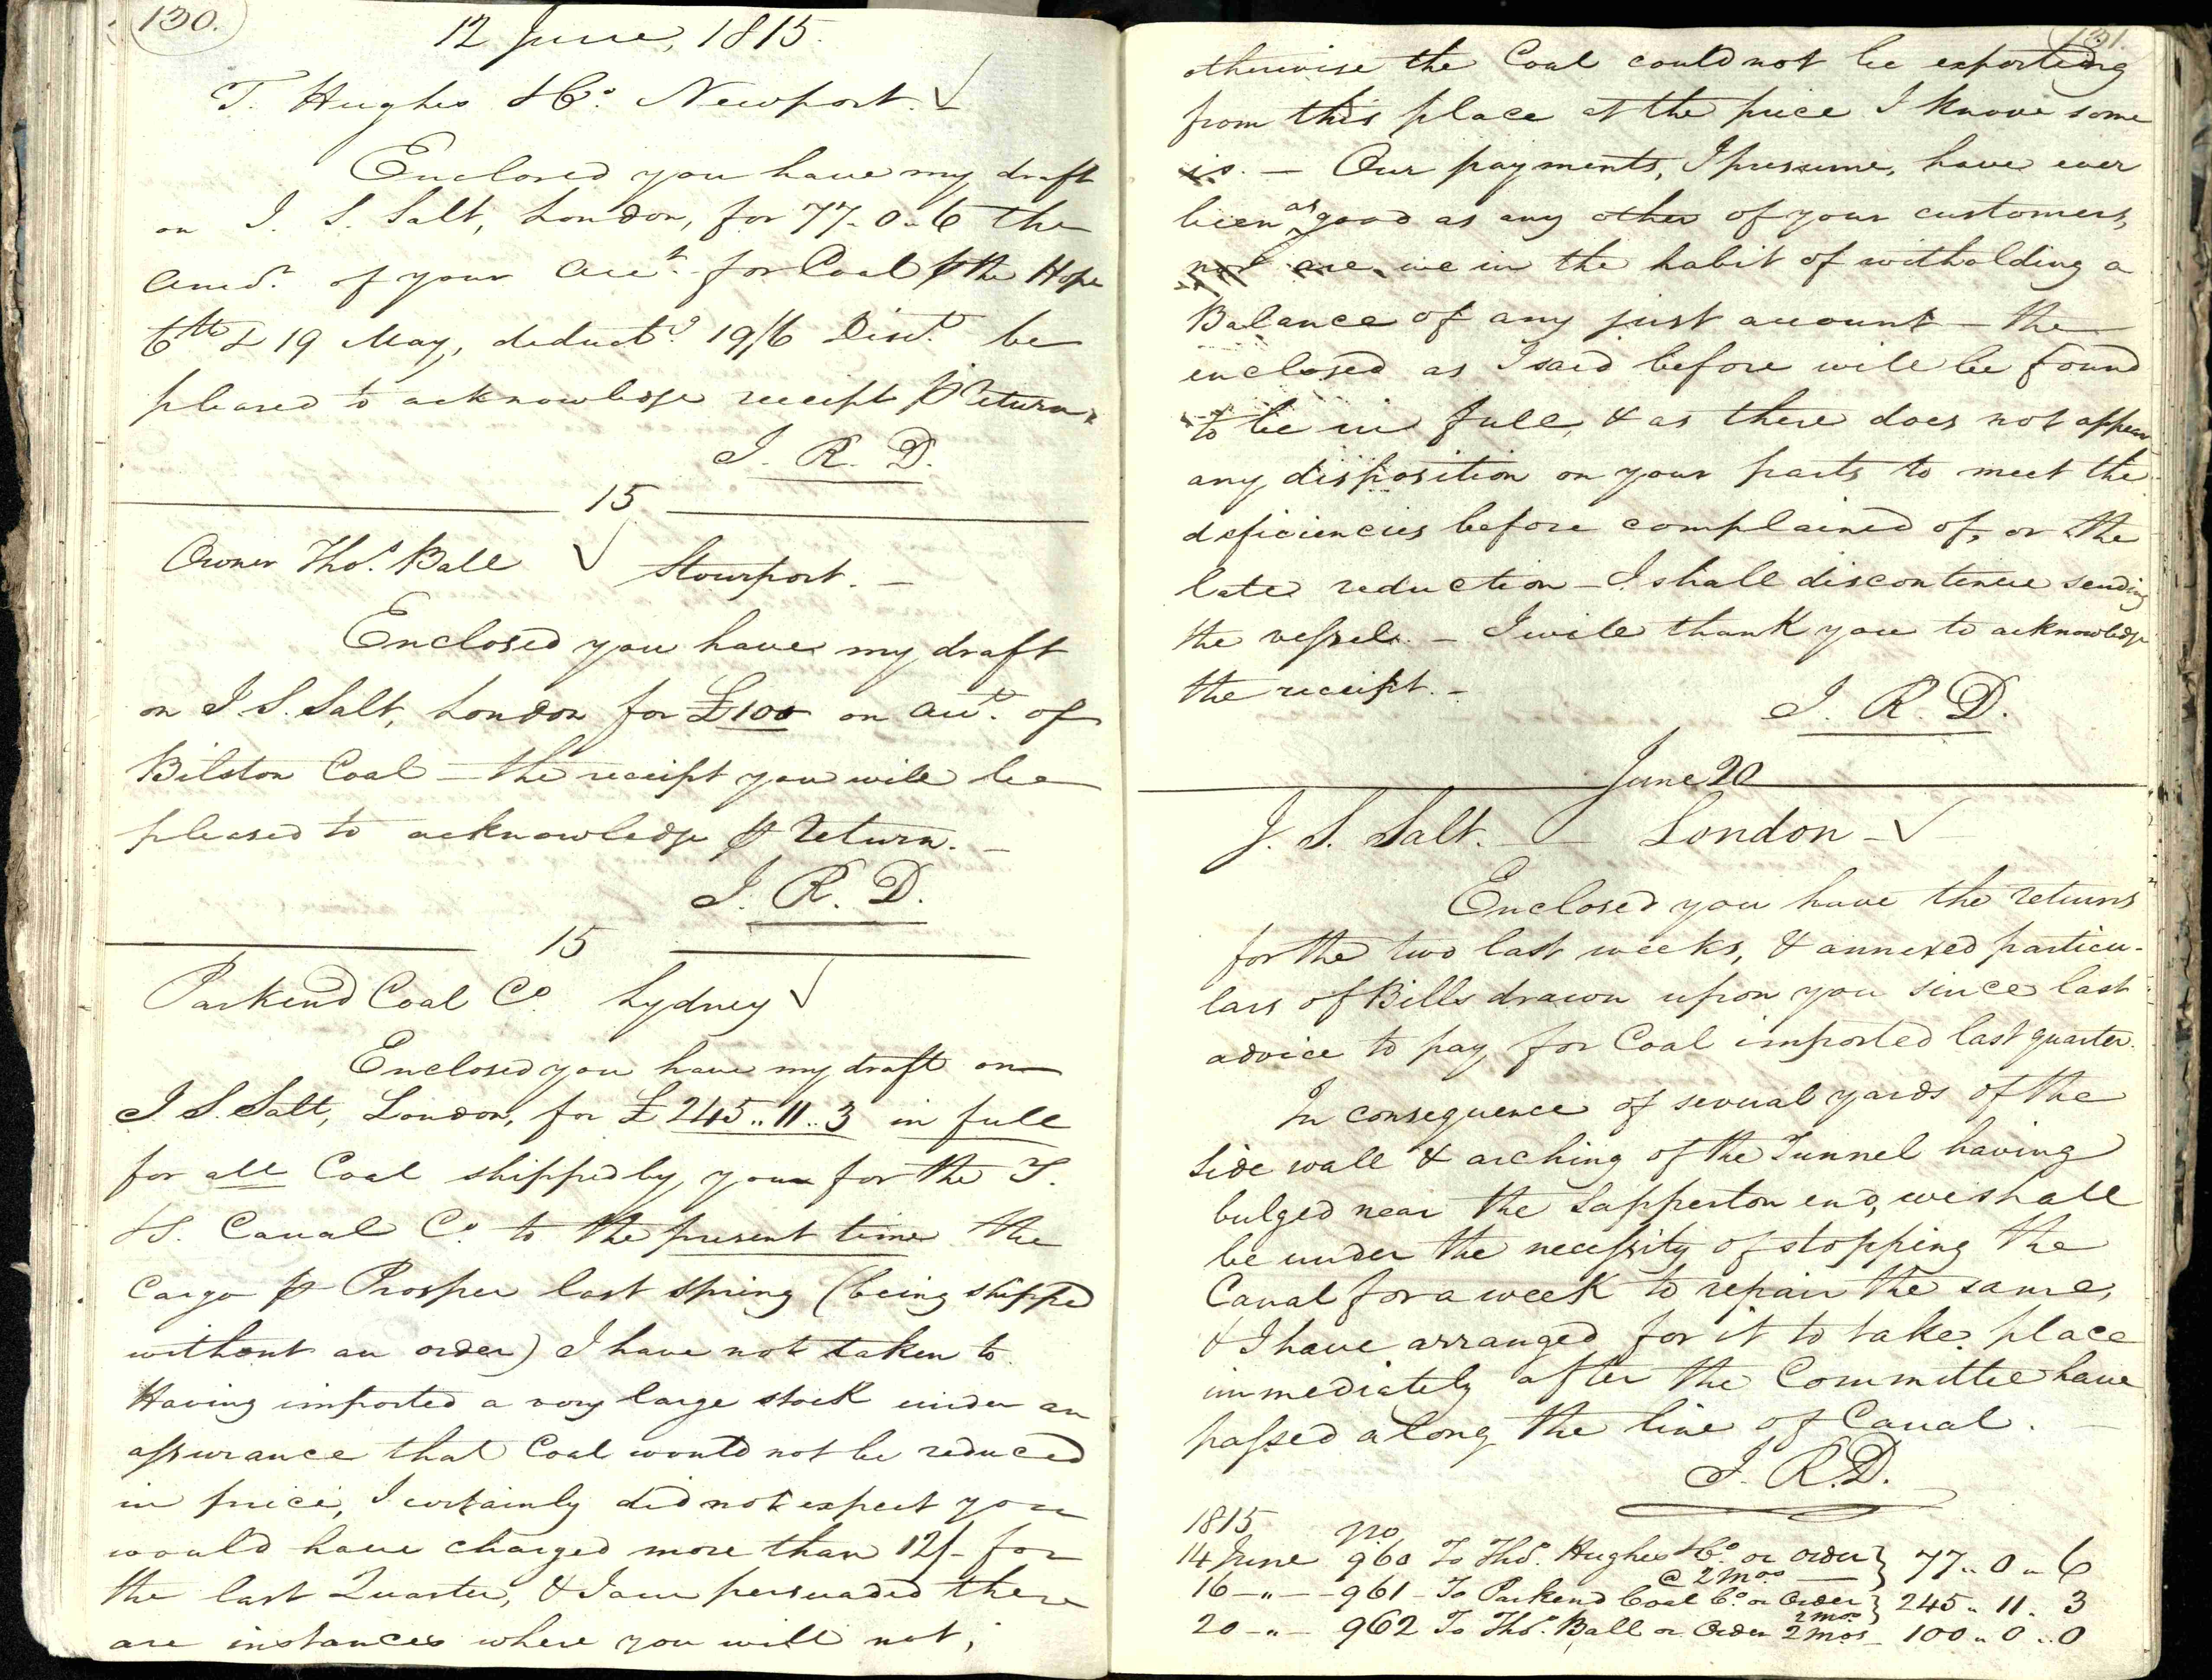 130.
12 June, 1815.
T. Hughes & Co. Newport. √
Enclosed you have my draft
on I. S. Salt, London, for 77 - 0 - 6 the
amot. of your acct. for Coal ⅌ the Hope
6th & 19 May, deductg. 19/6 Disct. be
pleased to acknowledge receipt ⅌ return.
I. R. D.
15
Owner Thos. Ball √ Stourport. -
Enclosed you have my draft
on I. S. Salt, London for £100 on acct. of
Bilston Coal - the receipt you will be
pleased to acknowledge ⅌ return. -
I. R. D.
15
Parkend Coal Co. Lydney √
Enclosed you have my draft on
I S. Salt, London, for £245..11..3 in full
for all Coal shipped by you for the T.
& S. Canal Co. to the present time the
Cargo ⅌ Prosper last Spring (being shipped
without an order) I have not taken to.
Having imported a very large stock under an
assurance that Coal would not be reduced
in price, I certainly did not expect you
would have charged more than 12/- for
the last Quarter, & I am persuaded there
are instances where you will not,
131.
otherwise the Coal could not be exporting
from this place at the price I know some
is. - Our payments, I presume, have ever
been as good as any other of your customers,
nor are we in the habit of witholding a
Balance of any just account - the
enclosed as I said before will be found
to be in full, & as there does not appear
any disposition on your parts to meet the
deficiencies before complained of, or the
late reduction - I shall discontinue sending
the vessels. - I will thank you to acknowledge
the receipt. -
I. R. D.
June 20
J. S. Salt. - London - √
Enclosed you have the returns
for the two last weeks, & annexed particu-
lars of Bills drawn upon you since last
advice to pay for Coal imported last quarter.
In consequence of several yards of the
side wall & arching of the Tunnel having
bulged near the Sapperton end, we shall
be under the necessity of stopping the
Canal for a week to repair the same,
& I have arranged for it to take place
immediately after the Committee have
passed along the line of Canal.
I. R. D.
1815
No.
14 June 960 To Thos. Hughes & Co. or order } 77.. 0 .. 6
@ 2 mos
16 - " - 961 - To Parkend Coal Co. or Order } 245 .. 11 .. 3
2 mos
20 - " - 962 To Thos. Ball or Order 2 mos - 100 .. 0 .. 0